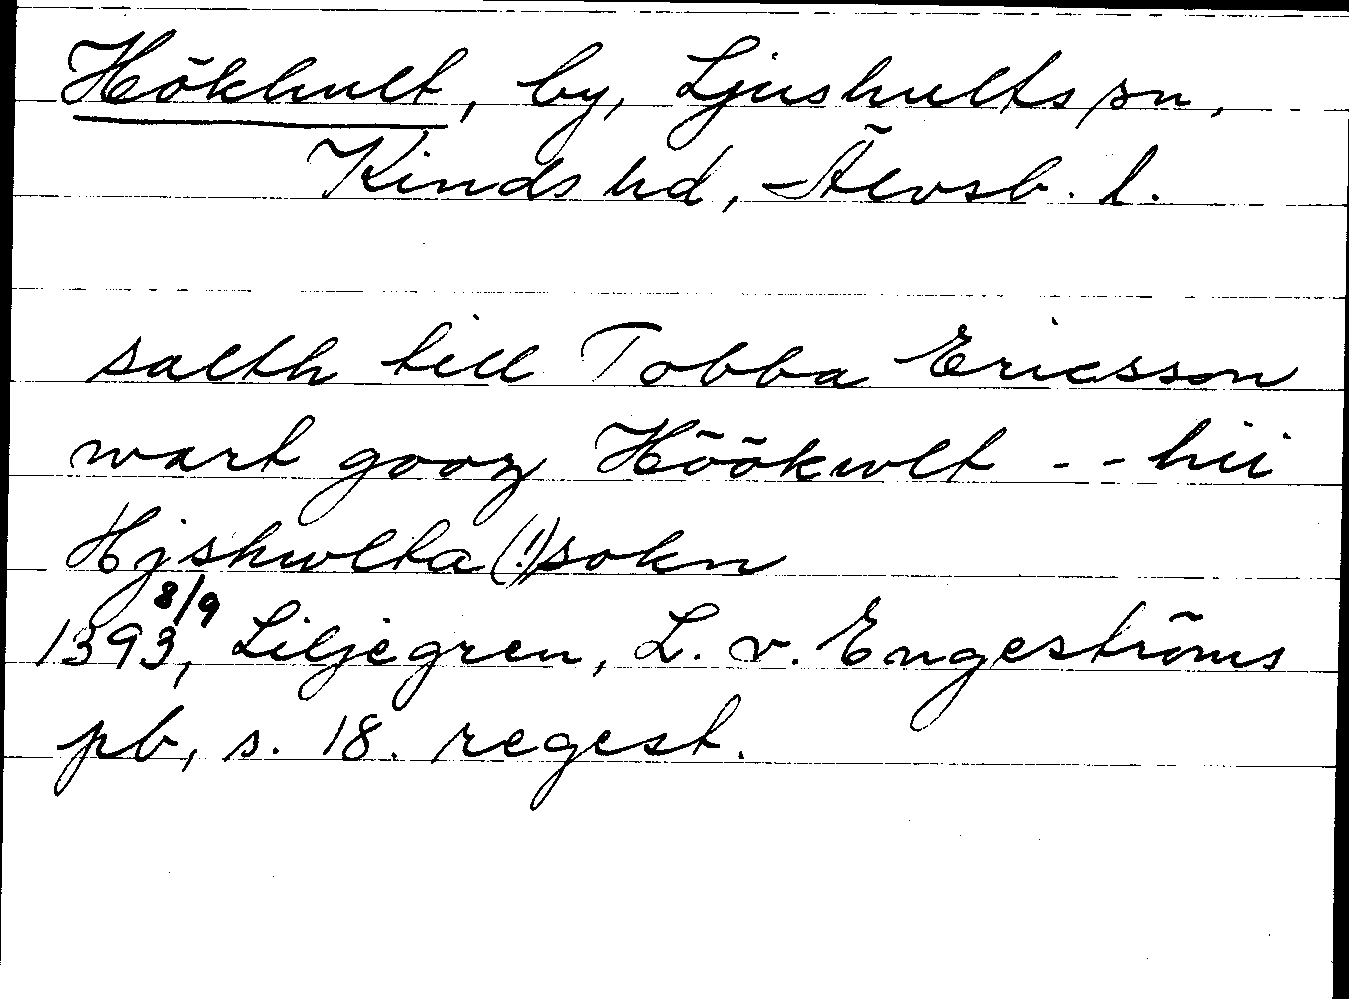 Hökhult, by, Ljushults sn,
Kinds hd, Älvsb. l.
salth till Tobba Ericsson
wart gooz Höökwlt - - hii
Hjshwlta (!) sokn
1393 8/9, Liljegren, L. v. Engeströms
pb, s. 18. regest.